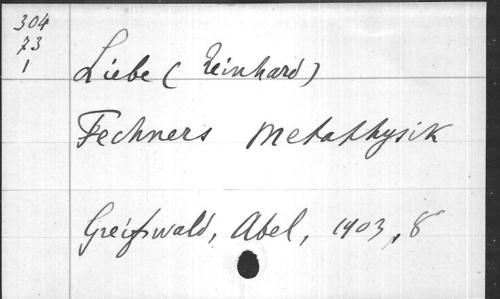 304
73
1
Liebe (Reinhard)
Fechners Metaphysik
Greifswald, Abel, 1903, 8°